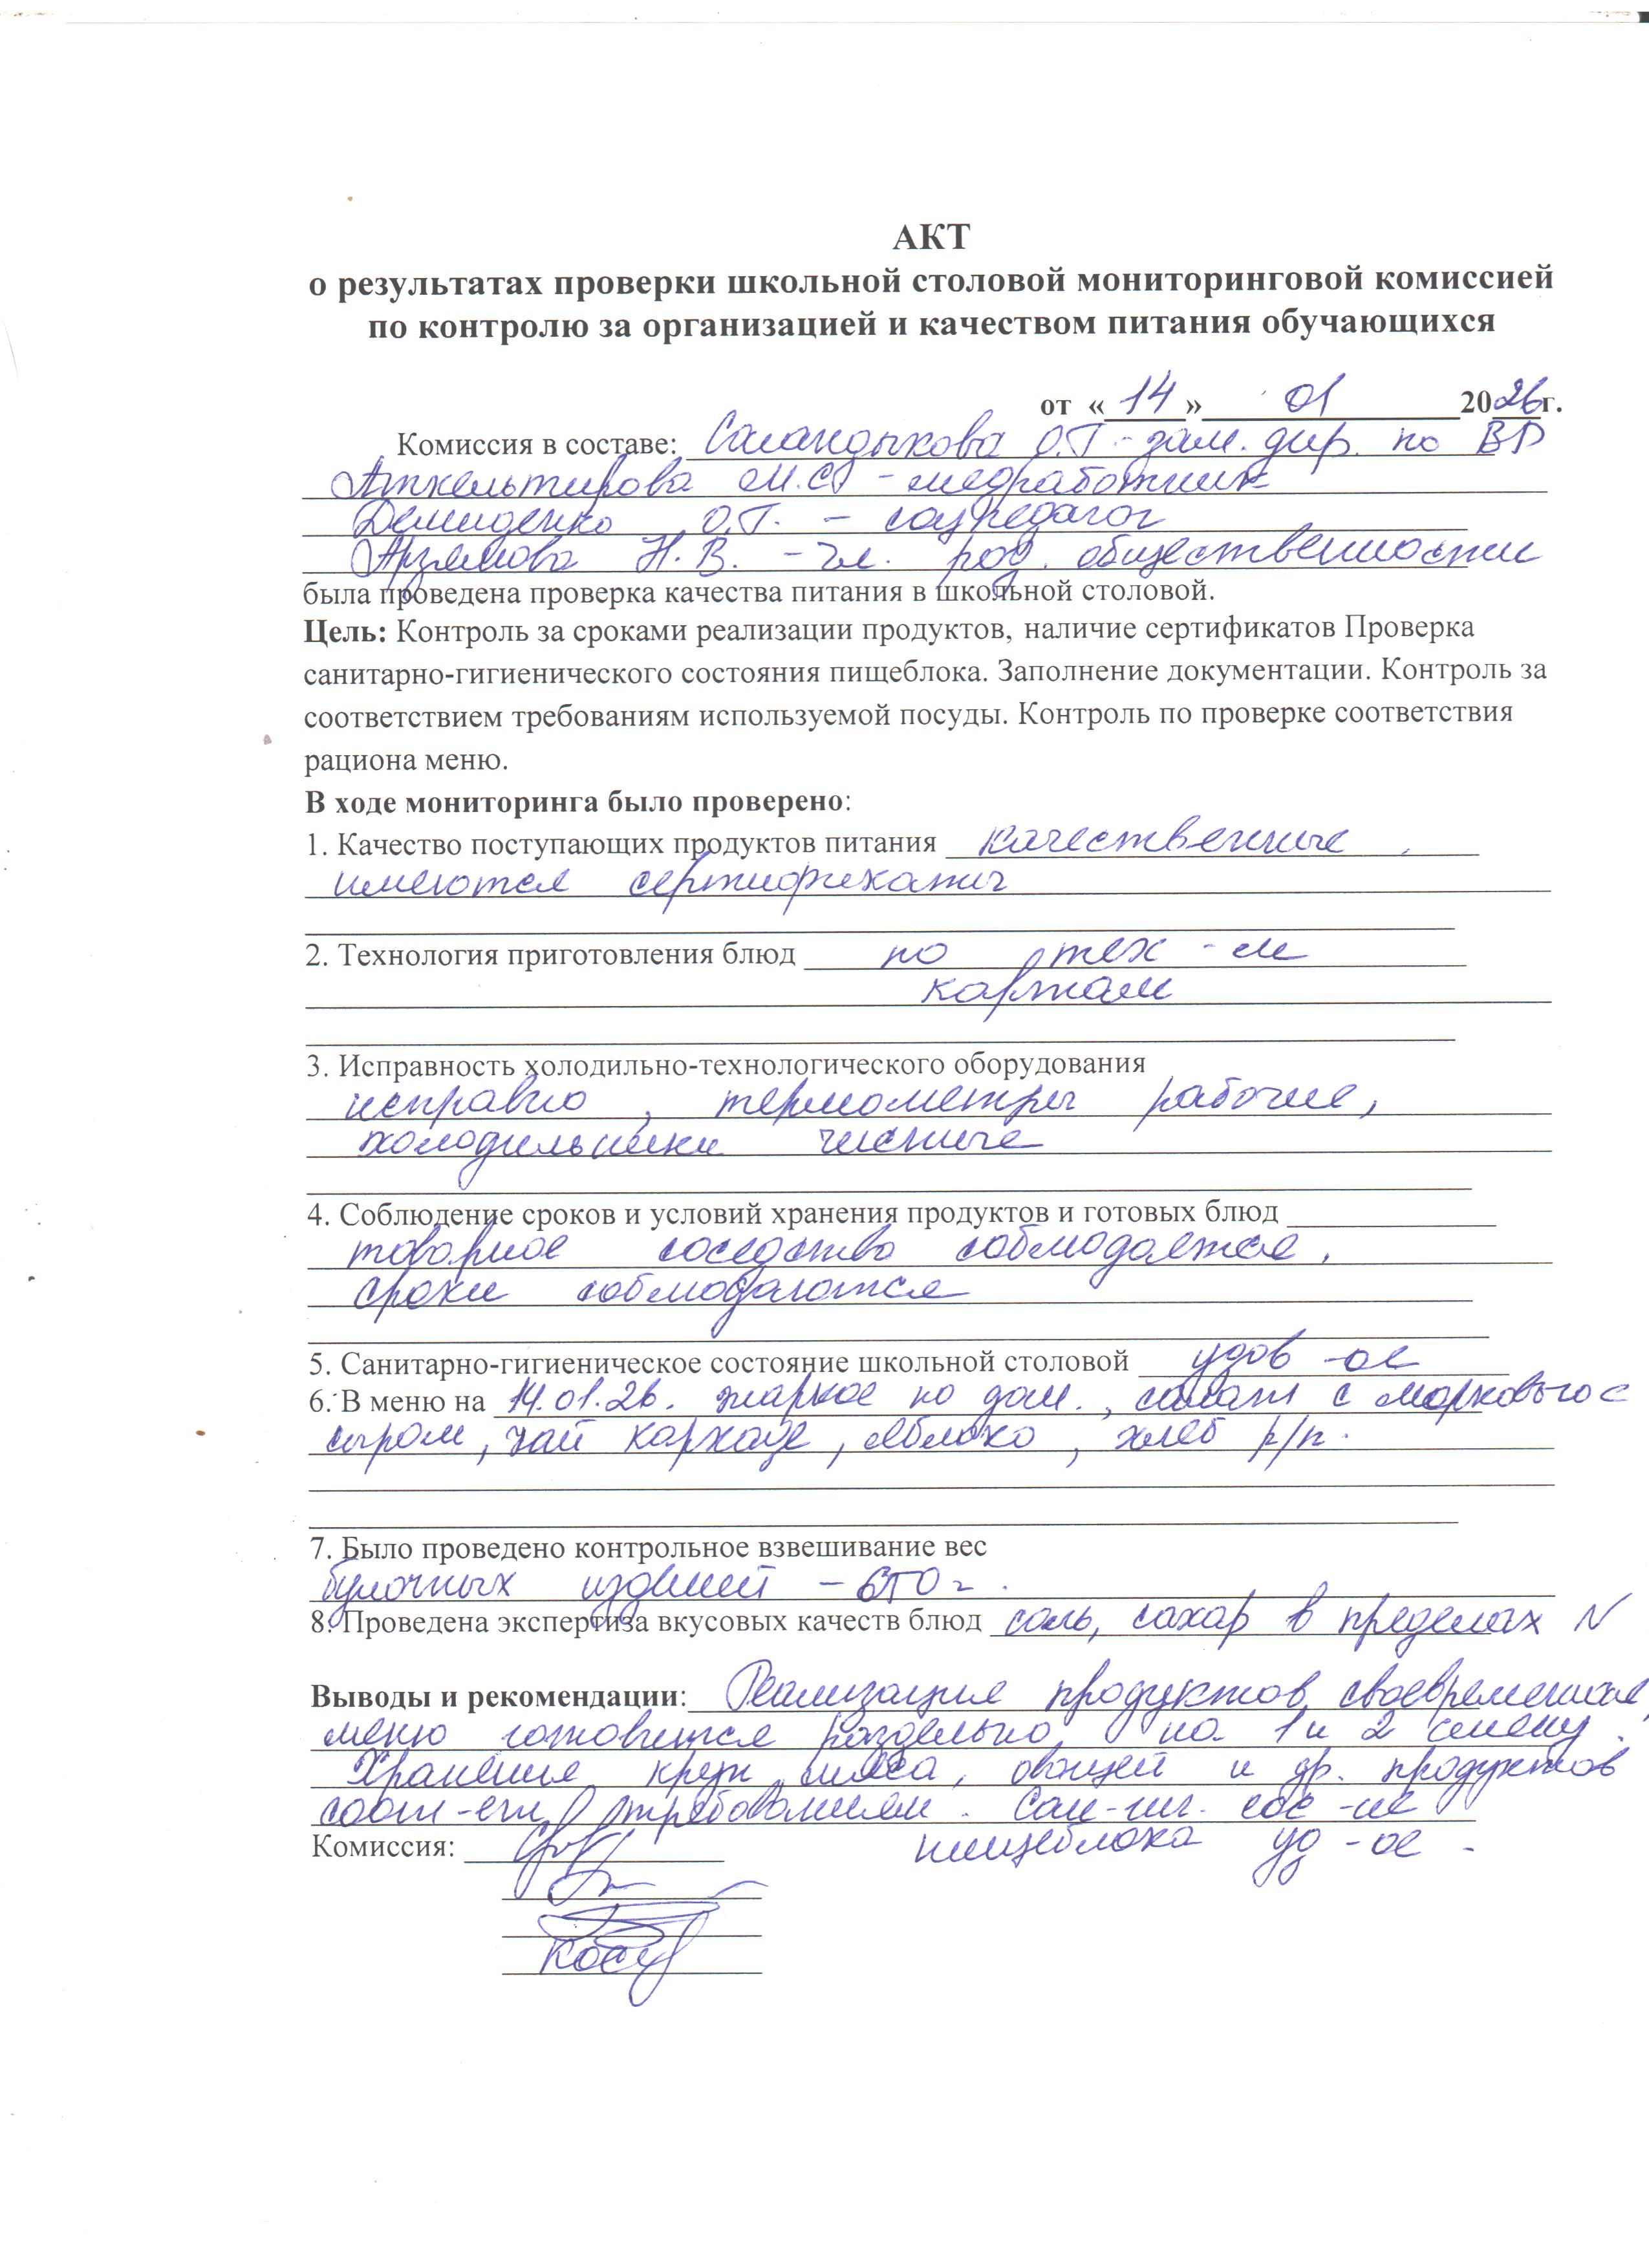 АКТ
о результатах проверки школьной столовой мониторинговой комиссией
по контролю за организацией и качеством питания обучающихся
от «14» 01 2026г.
Комиссия в составе: Саландыкова О.Г - зам. дир. по ВР
М.С - медработник
Демиденко О.Г. - соцпедагог
Арзямова Н.В. - чл. род. общественности
была проведена проверка качества питания в школьной столовой.
Цель: Контроль за сроками реализации продуктов, наличие сертификатов Проверка
санитарно-гигиенического состояния пищеблока. Заполнение документации. Контроль за
соответствием требованиям используемой посуды. Контроль по проверке соответствия
рациона меню.
В ходе мониторинга было проверено:
1. Качество поступающих продуктов питания качественные,
имеются сертификаты
2. Технология приготовления блюд по тех-м
картам
3. Исправность холодильно-технологического оборудования
исправно, термометры рабочие,
холодильники чистые
4. Соблюдение сроков и условий хранения продуктов и готовых блюд
товарное соседство соблюдается,
сроки соблюдаются
5. Санитарно-гигиеническое состояние школьной столовой удов-ое
6. В меню на 14.01.26. жаркое по дом., салат с морковью с
сыром, чай каркаде, яблоко, хлеб р/п.
7. Было проведено контрольное взвешивание вес
булочных изделий - г.
8. Проведена экспертиза вкусовых качеств блюд соль, сахар в пределах N
Выводы и рекомендации: Реализация продуктов своевременная,
меню готовится раздельно на 1 и 2 смену.
Хранение круп, мяса, овощей и др. продуктов
соот-ет требованиям. Сан-гиг. сос-ие
Комиссия:
пищеблока уд-ое.